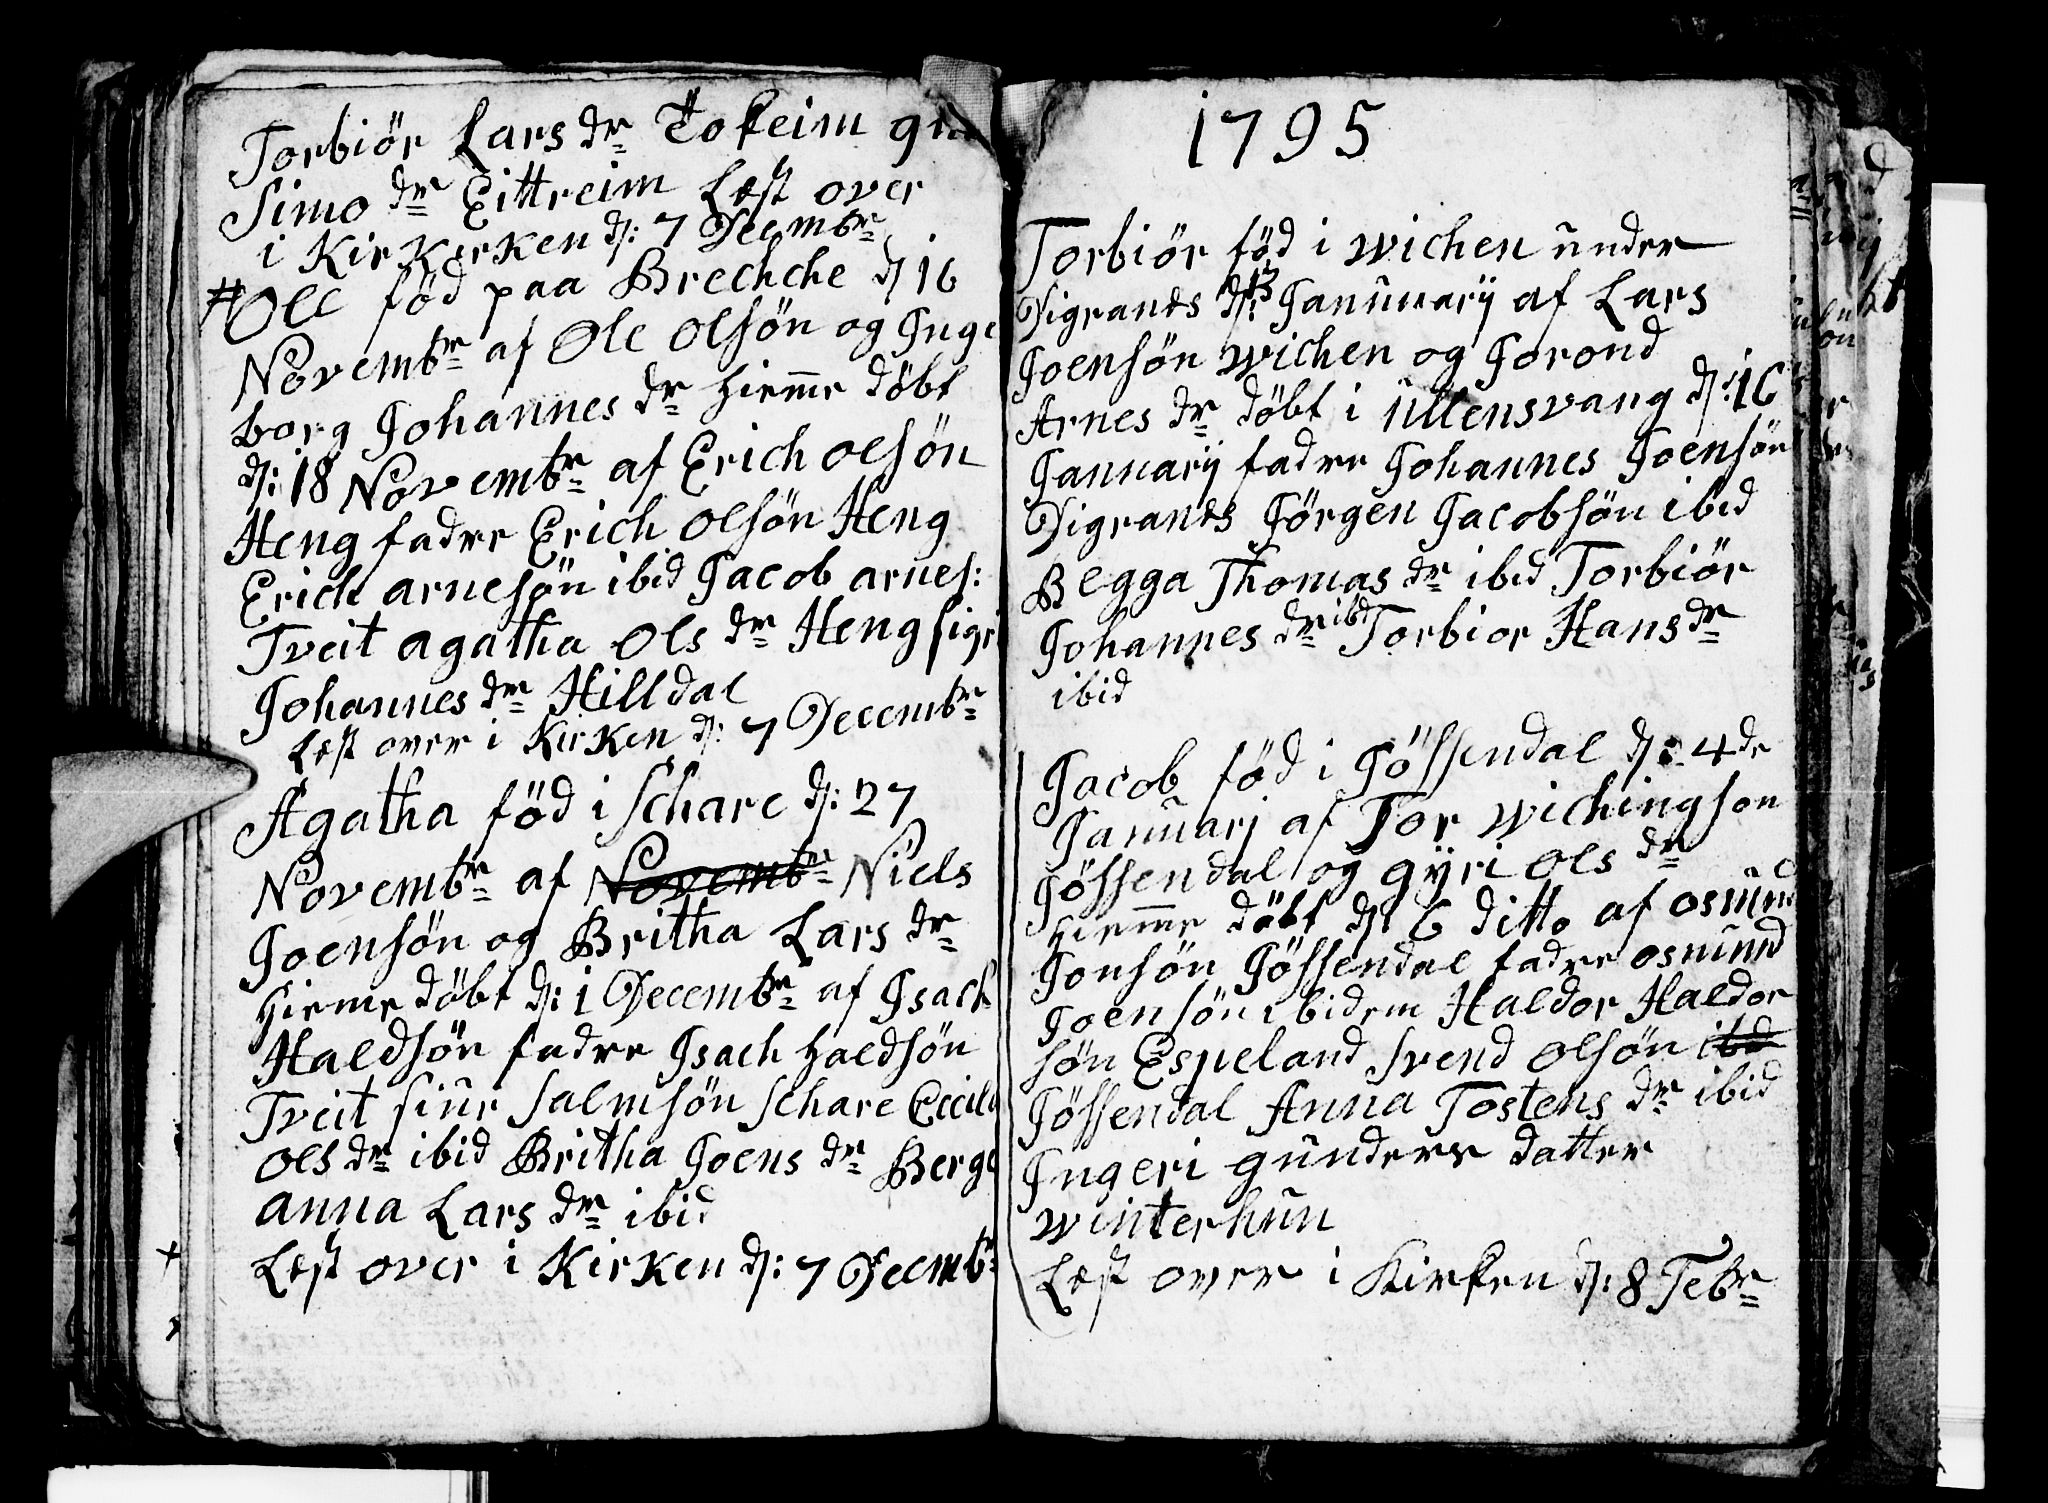 Torbiör Lars dr Tokeim
Simo dr Eittreim Læst over
i Kirkerken d: 7 Decmbr
# Ole föd paa Brechche d 16
Novembr af Ole Olsön og Inge
borg Johannes dr hiemme döbt
d: 18 Novembr af Erich Olsön
Heng fadre Erich Olsön Heng
Erich arnesön ibid Jacob arnes:
Tveit agatha Ols dr Heng sigri
Johannes dr Hilldal
Læst over i Kirken d: 7 Decembr
Agatha föd i Schare d: 27
Novembr af Novembr Niels
Joensön og Britha Lars dr
hieme döbt d: 1 Decembr af Isach
Haldsön fadre Isach haldsön
Tveit siur Salmsön Schare Eccil
Ols dr ibid Britha Joens dr Berge
anna Lars dr ibid
Læst over i Kirken d: 7 Decmbr
1795
Torbiör föd i wichen under
Digranes d: 13 Januuarij af Lars
Joensön wichen og Jorond
Arnes dr döbt i Ullensvang d: 16
Januarij fadre Johannes Joensön
Digranes Jörgen Jacobsön ibid
Begga Thomas dr ibid Torbiör
Johannes dr ibd Torbior Hans dr
ibid
Jacob föd i Jössendal d: 4de
Januarj af Tor wichingson
Jössendal og gÿri Ols dr
hiemme döbt d: 6 ditto af osmund
Jonsön Jössendal fadre osmund
Joensön ibidem Haldor Haldor
sön Espeland Svend Olsön ibd
Jössendal Anna Tostens dr ibid
Ingeri gunders datter
winterhun
Læst over i Kirken d: 8 Febr